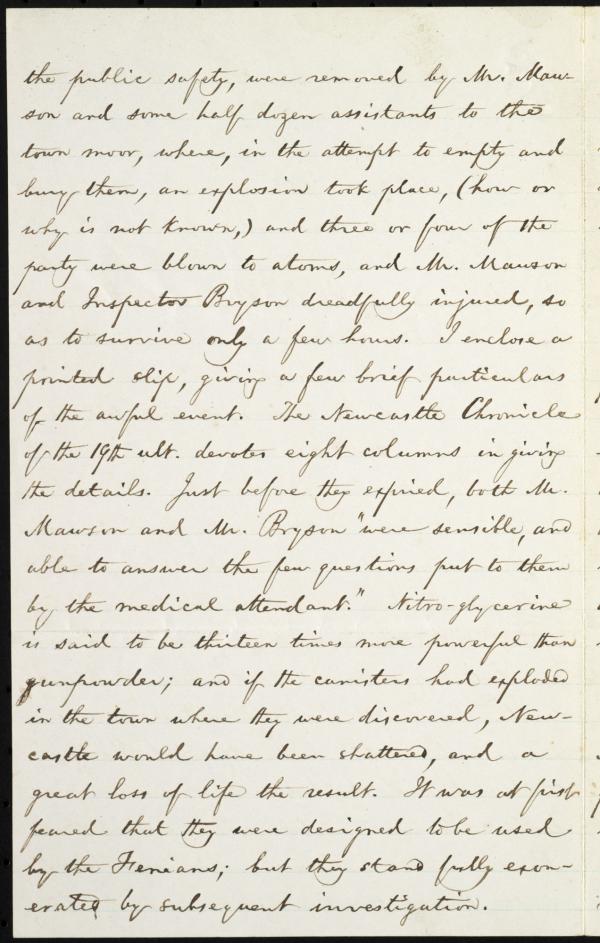 the public safety, were removed by Mr. Maw-
son and some half dozen assistants to the
town moor, where, in the attempt to empty and
bury them, an explosion took place, (how or
why is not known,) and three or four of the
party were blown to atoms, and Mr. Mawson
and Inspector Bryson dreadfully injured, so
as to survive only a few hours. I enclose a
printed slip, giving a few brief particulars
of the awful event. The Newcastle Chronicle
of the 19th ult. devotes eight columns in giving
the details. Just before they expired, both Mr.
Mawson and Mr. Bryson "were sensible, and
able to answer the few questions put to them
by the medical attendant." Nitro-glycerine
is said to be thirteen times more powerful than
gunpowder; and if the canisters had exploded
in the town where they were discovered, New-
castle would have been shattered, and a
great loss of life the result. It was at first
feared that they were designed to be used
by the Fenians; but they stand fully exon-
erated by subsequent investigation.